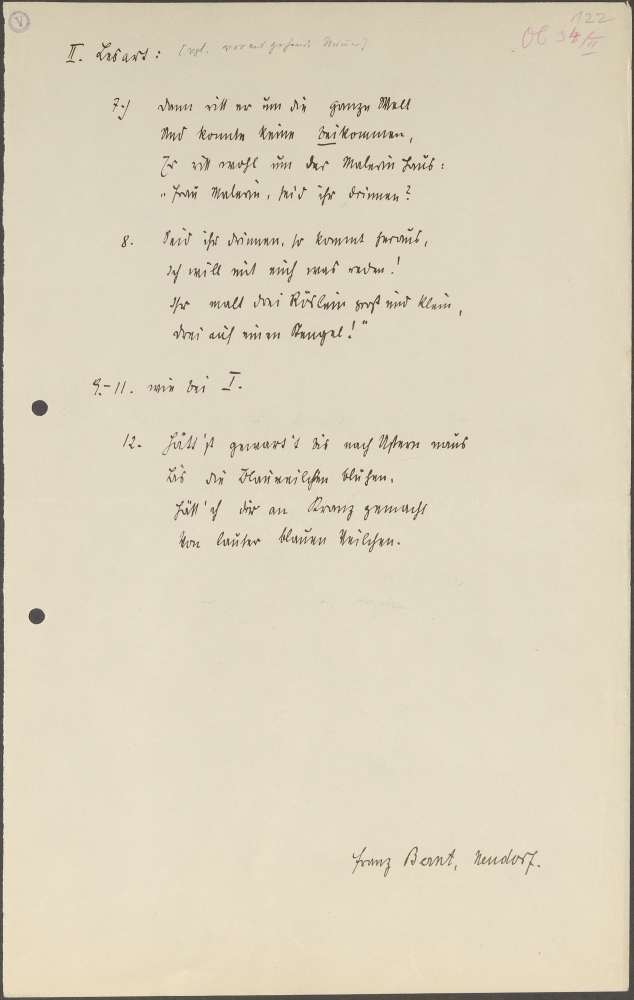 V
122
OE 34/II
II. Lesart: (vgl. vorausgehende Numer)
7.) Dann ritt er um die ganze Welt
Und konnte keine beikommen,
Er ritt wohl um der Malerin Haus:
„Frau Malerin, seid ihr drinnen?
8. Seid ihr drinnen, so kommt heraus,
Ich will mit euch was reden!
Ihr malt drei Röslein groß und klein,
Drei auf einen Stengel!“
9.-11. wie bei I.
12. Hätt'st gewart't bis nach Ostern naus
Bis die Blauveilchen blühen.
Hätt' ich dir an Kranz gemacht
Von lauter blauen Veilchen.
Franz Bernt, Neudorf.